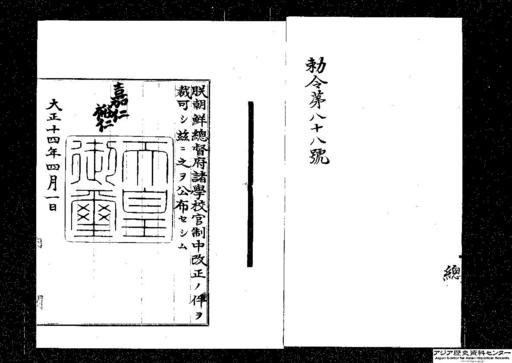 勅令第八十八號
朕朝鮮總督府諸學校官制中改正ノ件ヲ
裁可シ茲ニ之ヲ公布セシム
嘉仁
裕仁
天皇
御璽
大正十四年四月一日
總
アジア歴史資料センター
Japan Center for Asian Historical Records